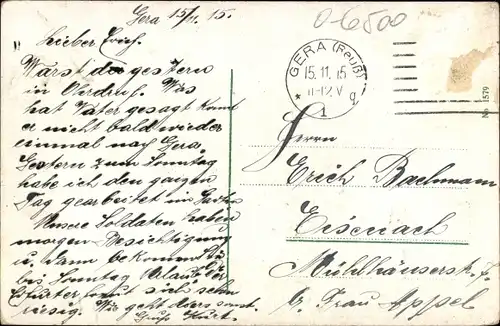 Gera 15/11. 15.
Lieber Erich.
Warst du gestern
in Ohrdruf. Was
hat Vater gesagt kommt
er nicht bald wieder
einmal nach Gera.
Gestern zum Sonntag
habe ich den ganzen
Tag gearbeitet im
Unsere Soldaten haben
morgen Besichtigung
u. dann bekommt
bis Sonntag Urlaub
sich sehr
riesig. Wie geht es sonst.
Gruß Kurt.
0-6500
GERA (Reuß)
15.11.15
11-12.V
* 1 g
No. 1579
Herrn
Erich Bachmann
Eisenach
Mühlhäuserstr.
b. Frau Appel